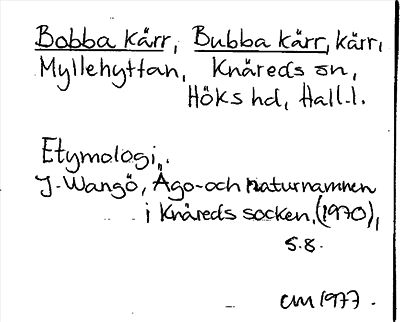 Bobba kärr, Bubba kärr, kärr,
Myllehyttan, Knäreds sn,
Höks hd, Hall.l.
Etymologi,
J. Wangö, Ägo- och naturnamnen
i Knäreds socken, (1970),
s.8.
CM 1977.